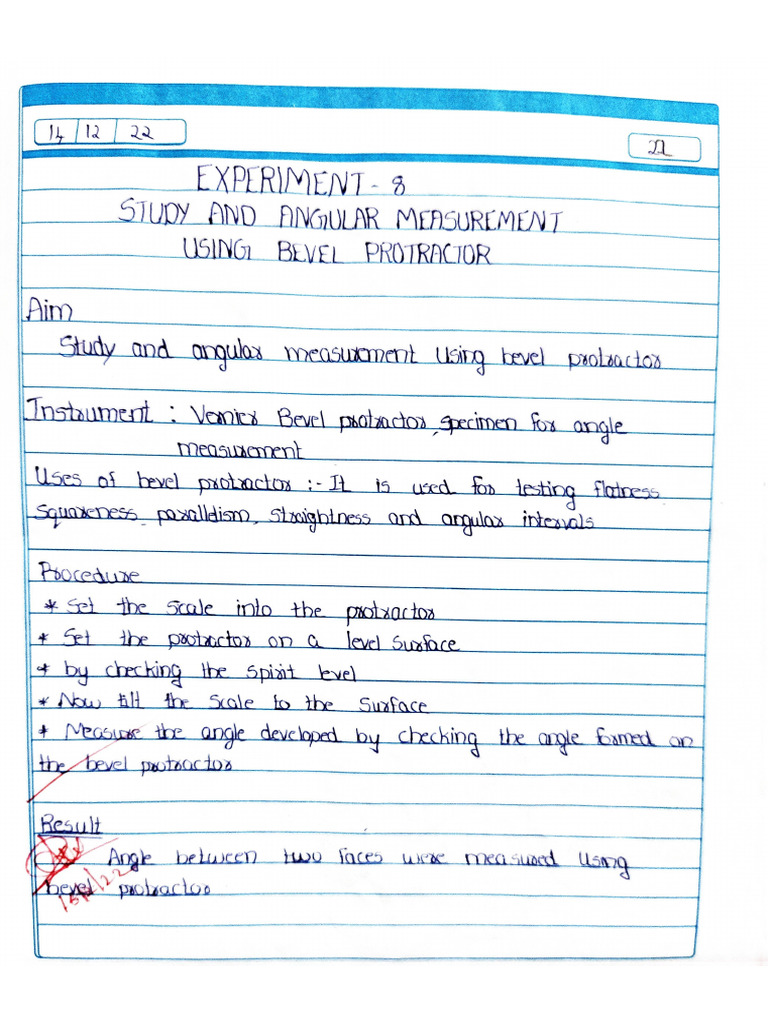 14 12 22
22
EXPERIMENT - 8
STUDY AND ANGULAR MEASUREMENT
USING BEVEL PROTRACTOR
Aim
Study and angular measurement using bevel protractor
Instrument : Vernier Bevel protractor, specimen for angle
measurement
Uses of bevel protractor :- It is used for testing flatness
squareness, paralldism, straightness and angular intervals
Procedure
* Set the scale into the protractor
* Set the protractor on a level surface
* by checking the spirit level
* Now tilt the scale to the surface
* Measure the angle developed by checking the angle formed on
the bevel protractor
Result
Angle between two faces were measured using
bevel protractor